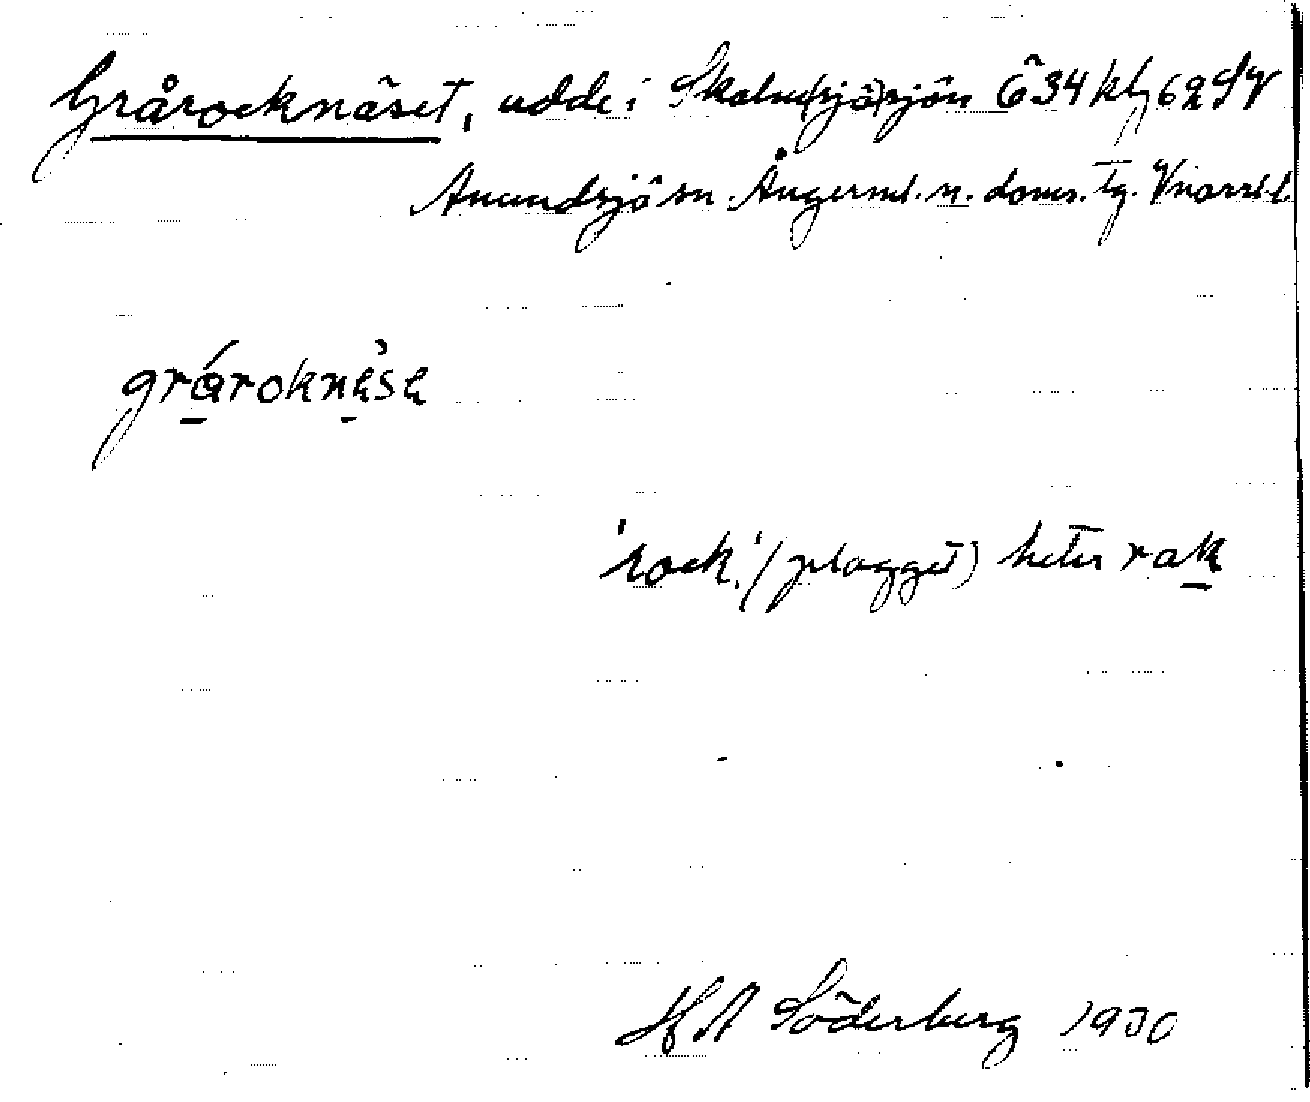 Grårocknäset, udde i Skalm(sjö)sjön Ö 34 kbl 62 SV
Anundsjö sn. Ångerml. n. doms. tg. Vnorrl. l.
gråroknèse
'rock' (plagget) heter rak
H A Söderberg 1930